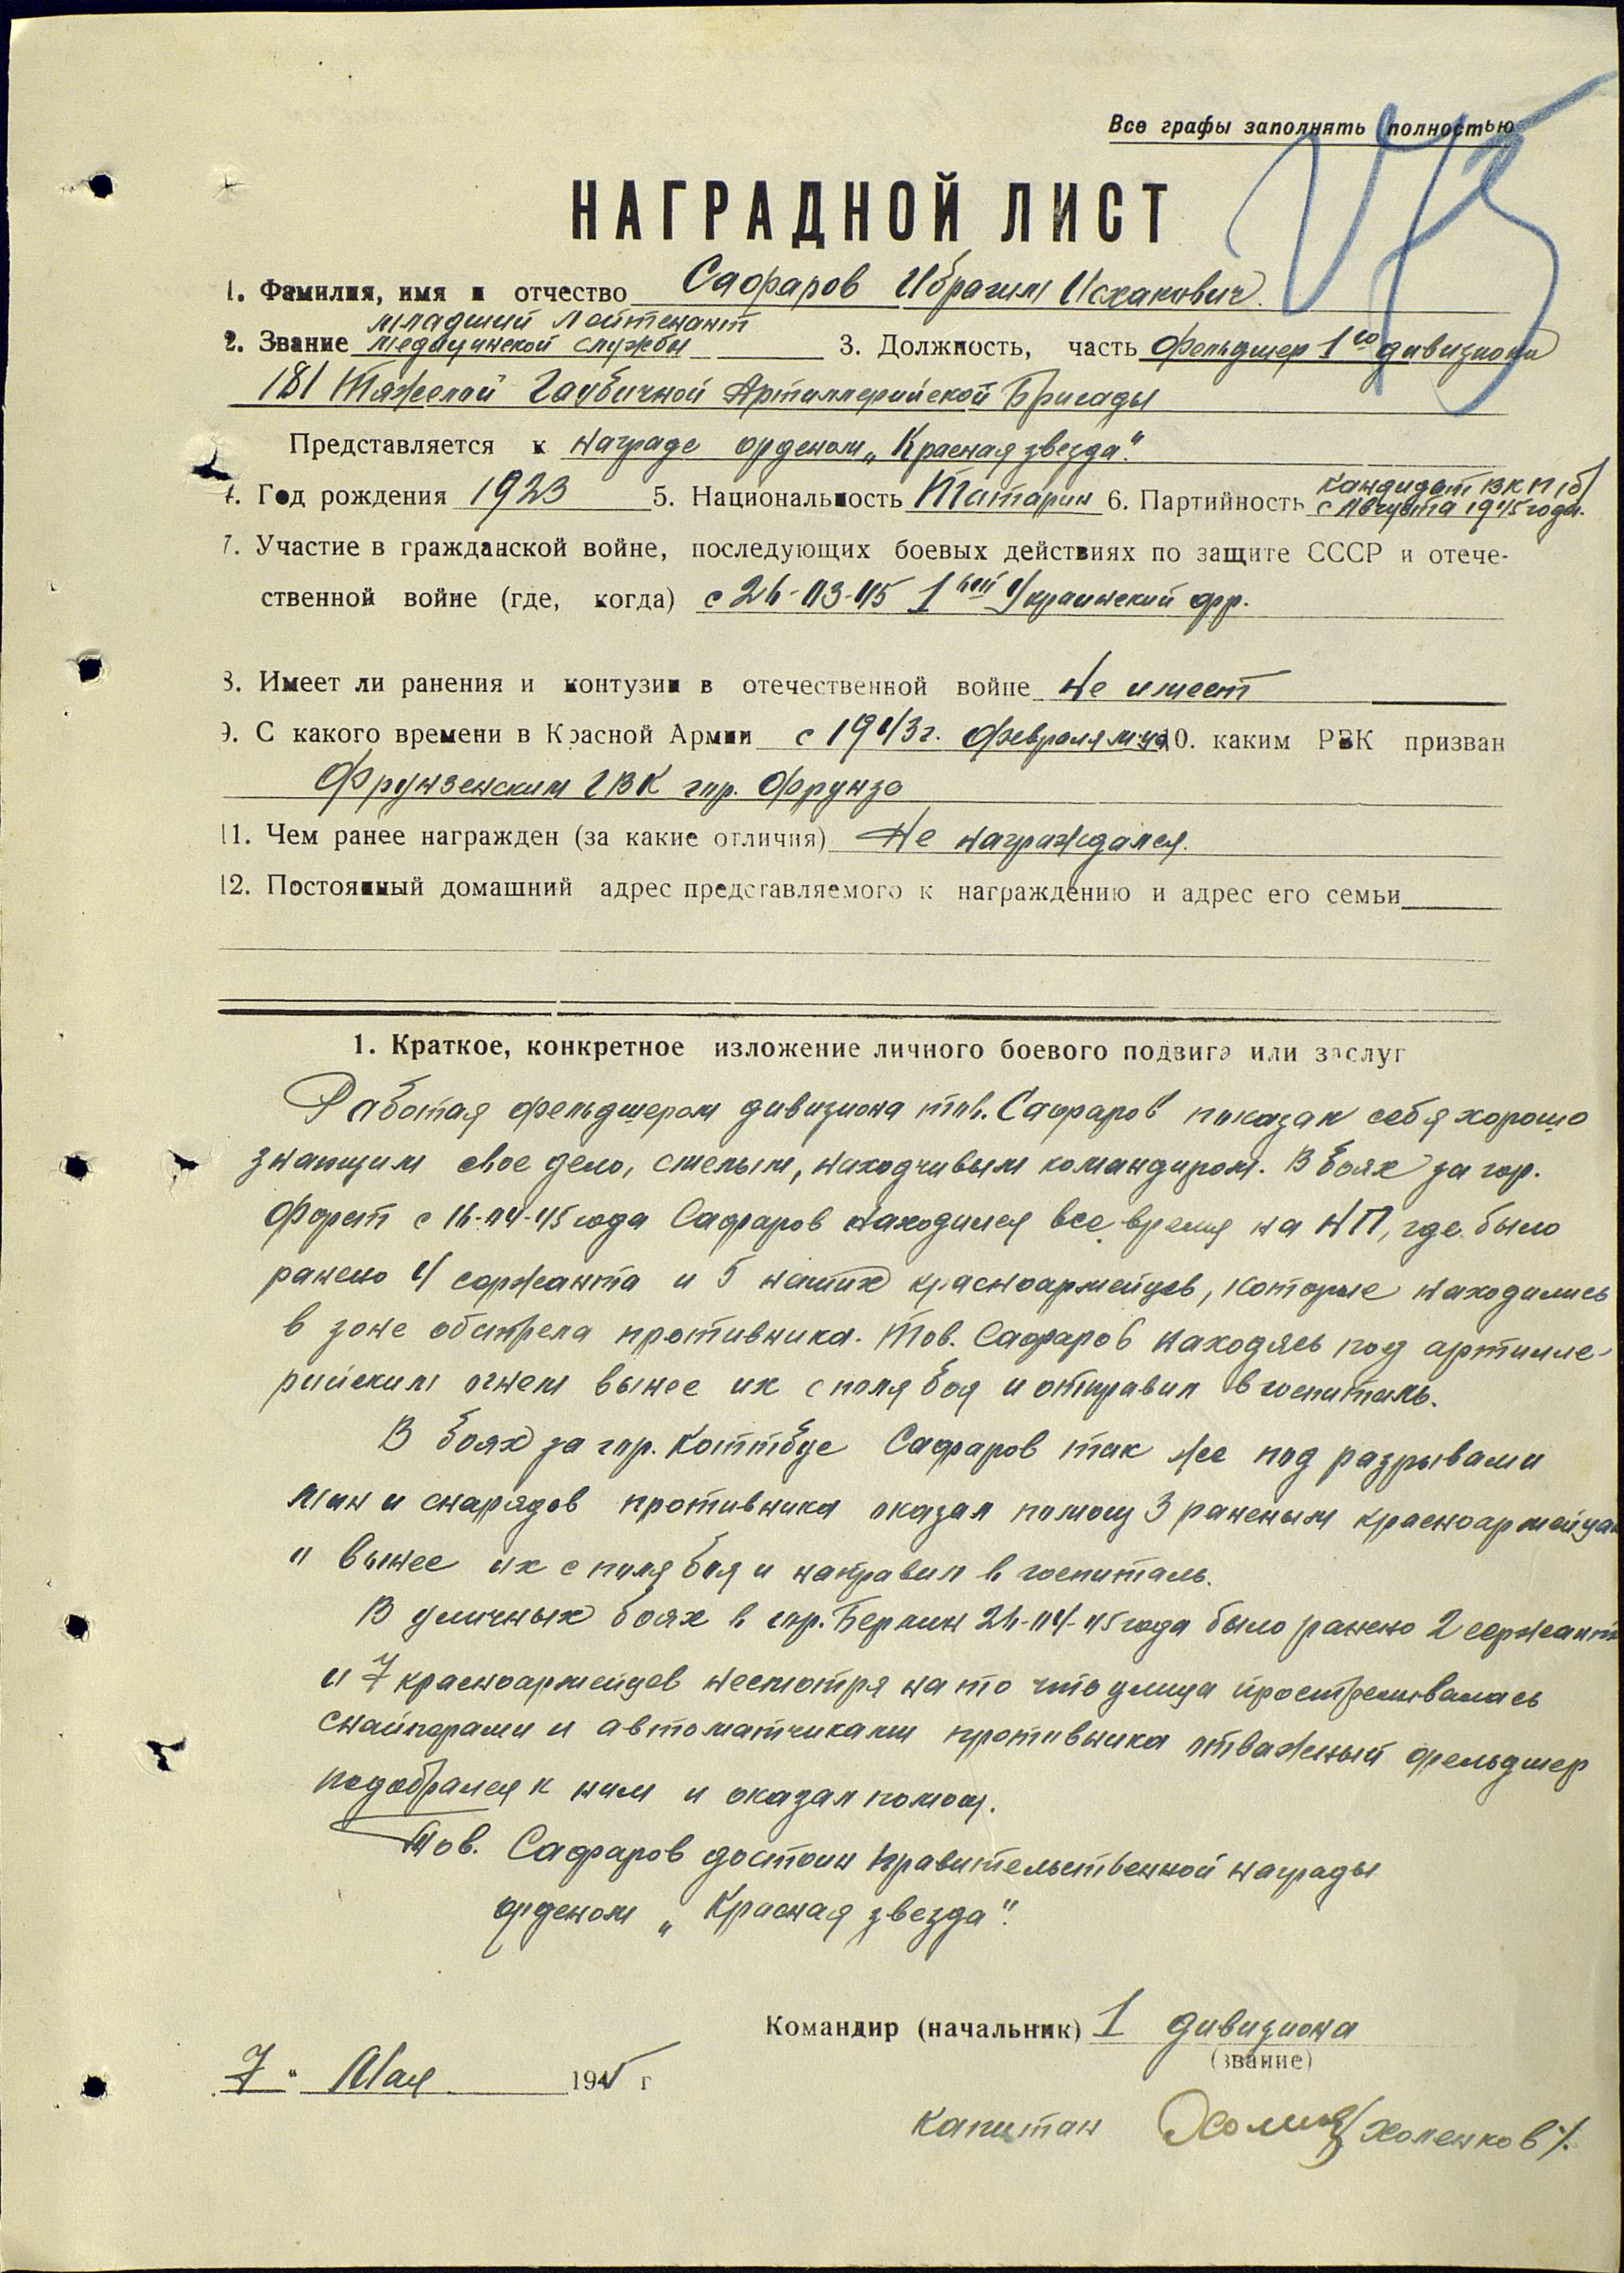 Все графы заполнять полностью
НАГРАДНОЙ ЛИСТ
1. Фамилия, имя и отчество Сафаров Ибрагим Исхакович.
младший лейтенант
2. Звание медицинской службы 3. Должность, часть Фельдшер 1го дивизиона
181 Тяжелой Гаубичной Артиллерийской Бригады
Представляется к награде орденом „Красная звезда".
4. Год рождения 1923 5. Национальность Татарин 6. Партийность кандидат ВКП(б)
с Августа 1945 года.
7. Участие в гражданской войне, последующих боевых действиях по защите СССР и отече-
ственной войне (где, когда) с 26-03-45 1ый Украинский фр.
8. Имеет ли ранения и контузии в отечественной войне Не имеет
9. С какого времени в Красной Армии с 1943 г. Февраля м-ца 10. каким РВК призван
Фрунзенским ГВК гор. Фрунзе
11. Чем ранее награжден (за какие отличия) Не награждался.
12. Постоянный домашний адрес представляемого к награждению и адрес его семьи
1. Краткое, конкретное изложение личного боевого подвига или заслуг
Работая фельдшером дивизиона тов. Сафаров показал себя хорошо
знающим свое дело, смелым, находчивым командиром. В боях за гор.
Форст с 16-04-45 года Сафаров находился все время на НП, где было
ранено 4 сержанта и 5 наших красноармейцев, которые находились
в зоне обстрела противника. Тов. Сафаров находясь под артилле-
рийским огнем вынес их с поля боя и отправил в госпиталь.
В боях за гор. Коттбус Сафаров так же под разрывами
мин и снарядов противника оказал помощ 3 раненым красноармейцам
и вынес их с поля боя и направил в госпиталь.
В уличных боях в гор. Берлин 26-04-45 года было ранено 2 сержанта
и 7 красноармейцев несмотря на то что улица простреливалась
снайперами и автоматчиками противника отважный фельдшер
подобрался к ним и оказал помощ.
Тов. Сафаров достоин правительственной награды
орденом „Красная звезда".
Командир (начальник) 1 дивизиона
(звание)
7 " Мая 1945 г
капитан /Холенков/.